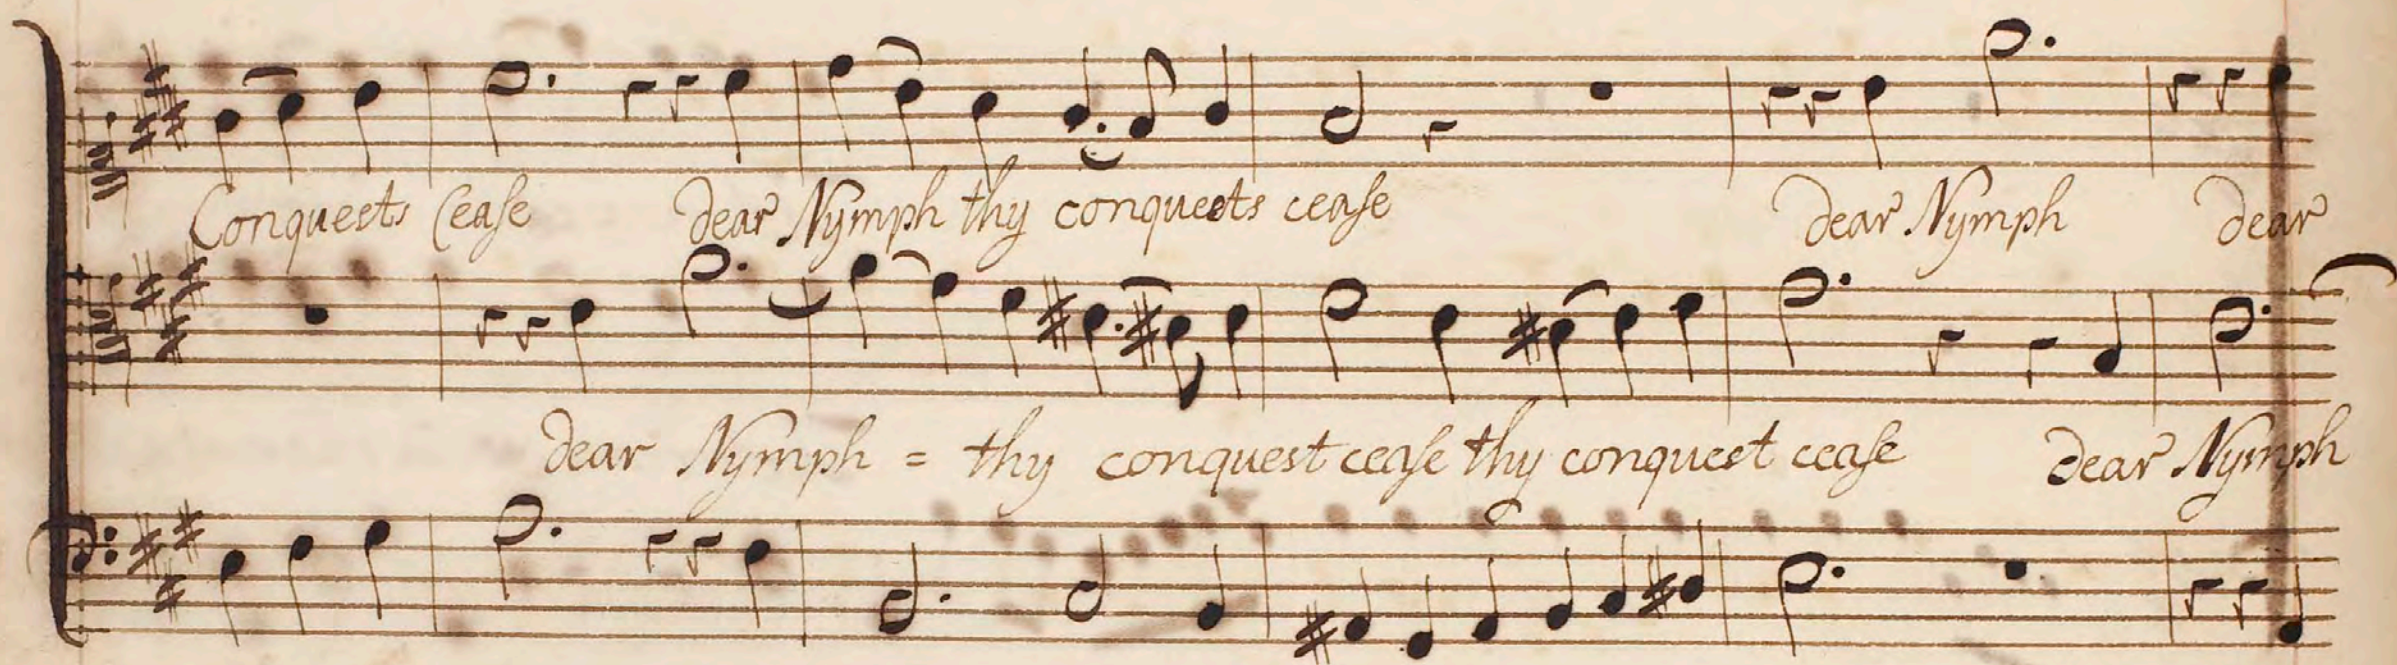 Conquests Cease dear Nymph thy conquests cease dear Nymph dear
dear Nymph = thy conquest cease thy conquest cease dear Nymph